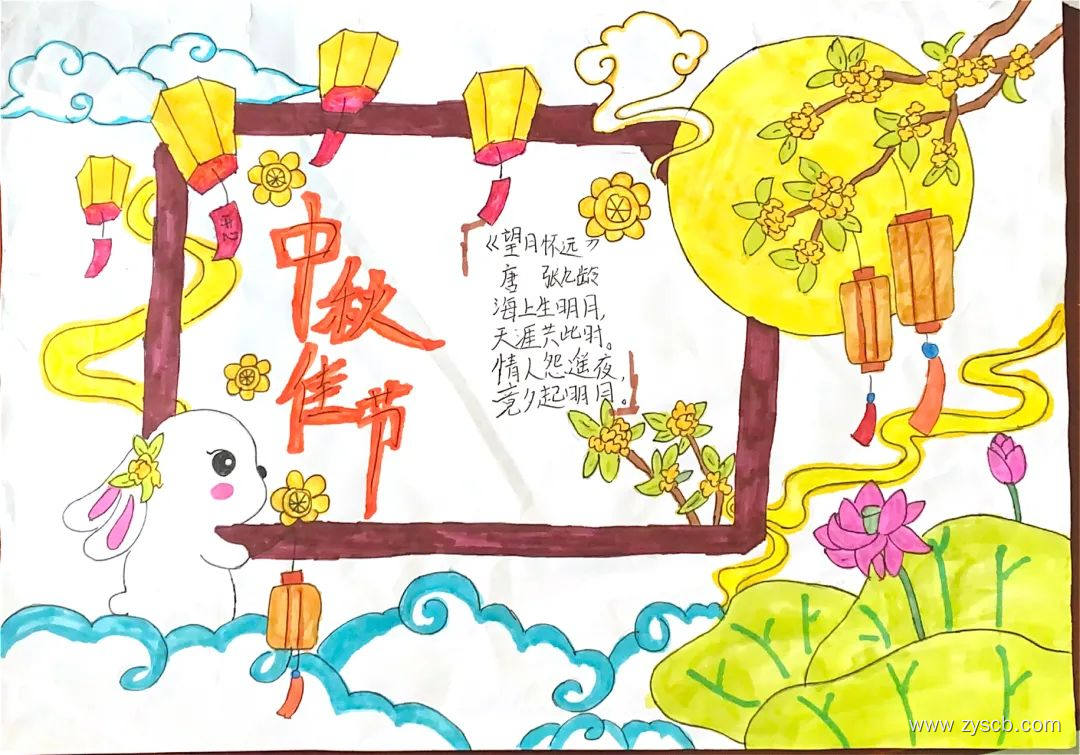 中秋佳节
开心
《望月怀远》
唐 张九龄
海上生明月,
天涯共此时。
情人怨遥夜,
竟夕起明月。
www.zyscb.com